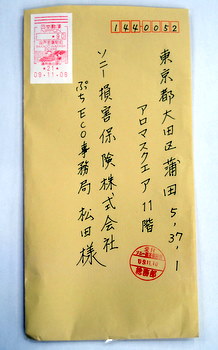 1440052
東京都大田区蒲田5,37,1
アロマスクエア11階
ソニー損害保険株式会社
ぷちECO事務局 松田様
日本郵便
09-11-06